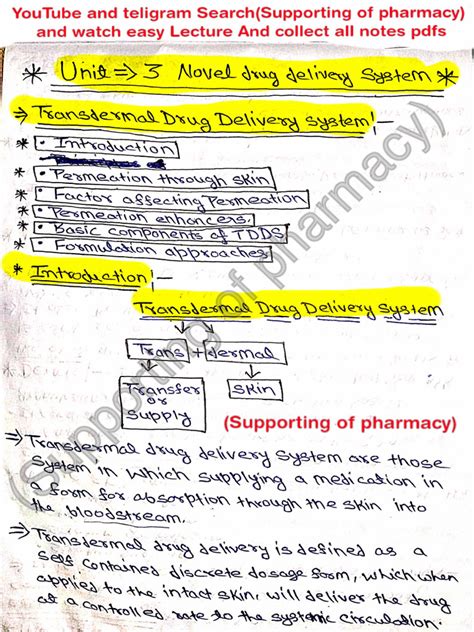 YouTube and teligram Search(Supporting of pharmacy)
and watch easy Lecture And collect all notes pdfs
* Unit ⇒ 3 Novel drug delivery System *
⇒ Transdermal Drug Delivery system!-
* • Introduction
* • Permeation through skin
* • Factor affecting Permeation
* • Permeation enhancers.
* • Basic components of TDDS
* • Formulation approaches
* Introduction!-
Transdermal Drug Delivery System
Trans + dermal
Transfer or Supply
Skin
(Supporting of pharmacy)
(Supporting of pharmacy)
⇒ Transdermal drug delivery system are those
System in which supplying a medication in
a form for absorption through the skin into
the bloodstream.
⇒ Transdermal drug delivery is defined as a
Self contained discrete dosage form, which when
applied to the intact skin, will deliver the drug
at a controlled rate to the systemic circulation.